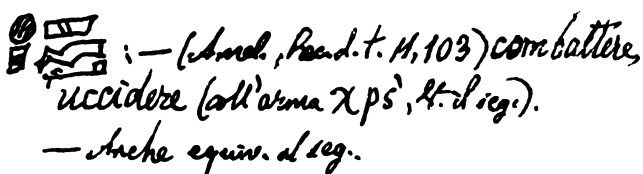 : — (Amel., Pead. t. II, 103) combattere,
uccidere (coll'arma χ ps', V. il seg.).
— Anche equiv. al seg.